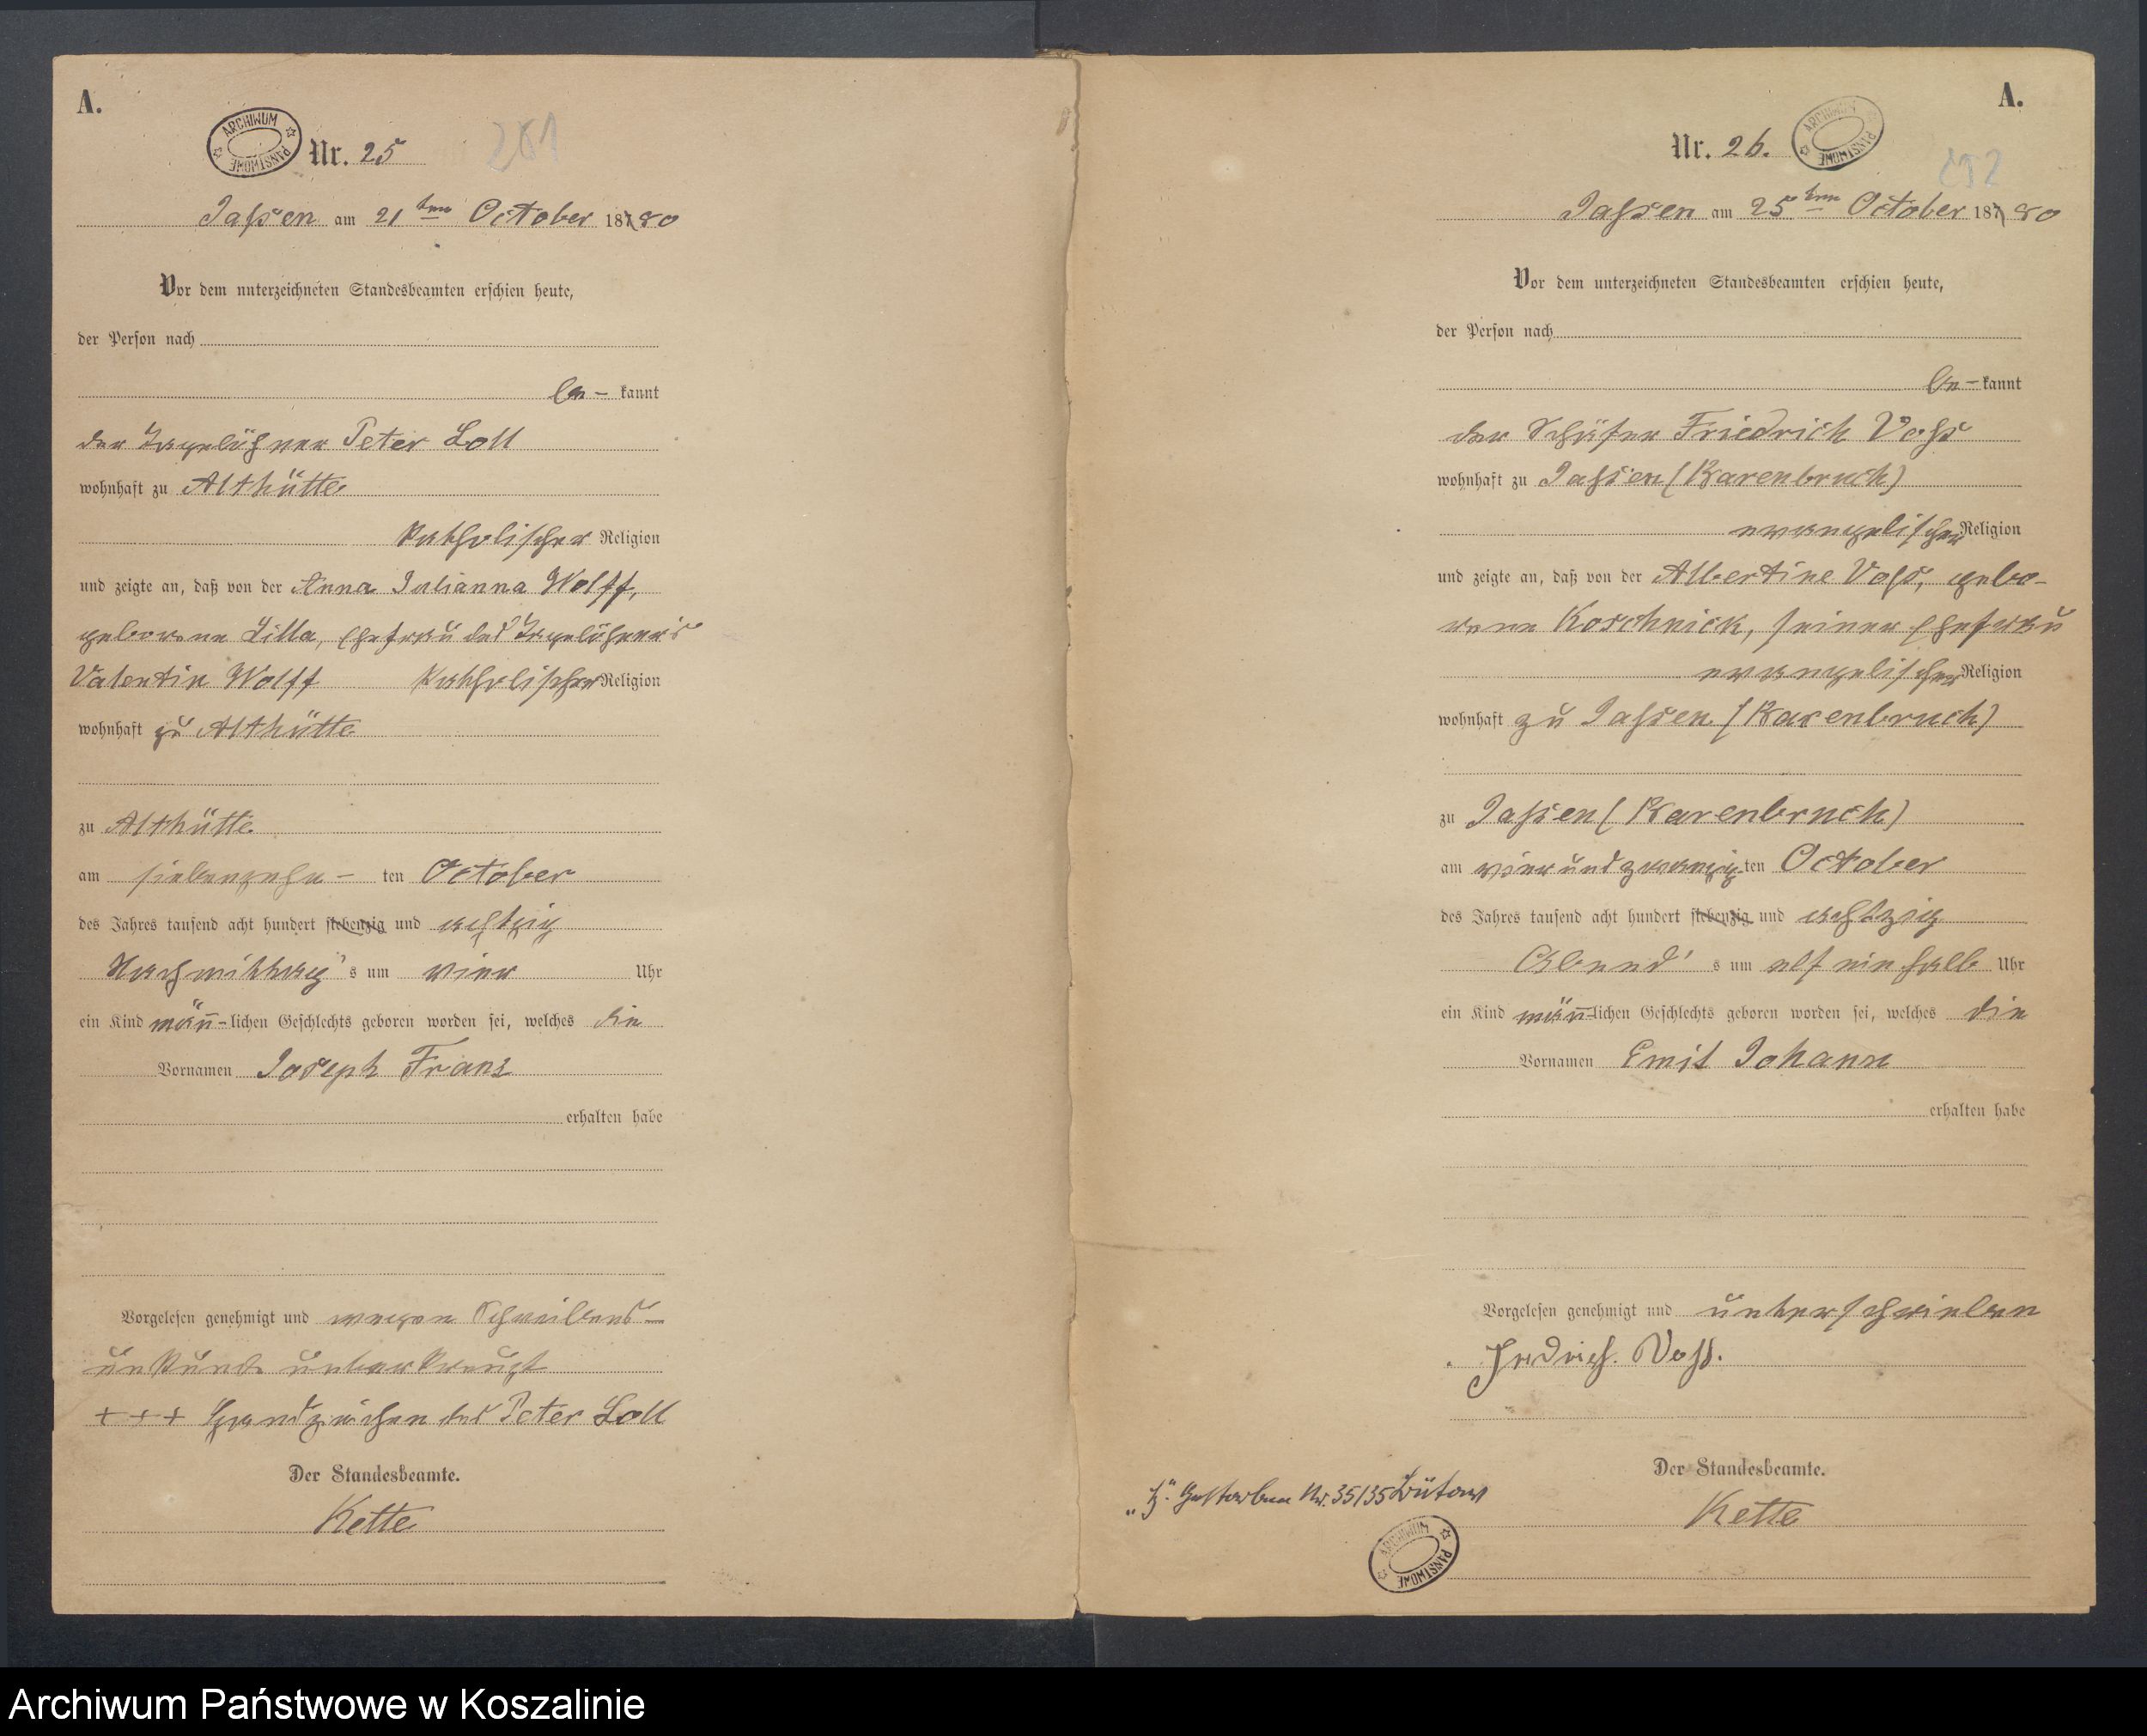 A.
ARCHIWUM PAŃSTWOWE
Nr. 25
Jassen am 21ten October 1880
Vor dem unterzeichneten Standesbeamten erschien heute,
der Person nach
be- kannt
der Tagelöhner Peter Loll
wohnhaft zu Althütte
katholischer Religion
und zeigte an, daß von der Anna Julianna Wolff,
geborene Lilla, Ehefrau des Tagelöhner's
Valentin Wolff katholischer Religion
wohnhaft zu Althütte
zu Althütte
am siebenzehn- ten October
des Jahres tausend acht hundert siebenzig und achtzig
Nachmittag's um vier Uhr
ein Kind män̄-lichen Geschlechts geboren worden sei, welches die
Vornamen Joseph Franz
erhalten habe
Vorgelesen genehmigt und wegen Schreibens-
unkunde unterkreuzt
+ + + Handzeichen des Peter Loll
Der Standesbeamte.
Kette
A.
Nr. 26.
ARCHIWUM PAŃSTWOWE
Jassen am 25ten October 1880
Vor dem unterzeichneten Standesbeamten erschien heute,
der Person nach
be- kannt
der Schäfer Friedrich Voss
wohnhaft zu Jassen (Karenbruch)
evangelischer Religion
und zeigte an, daß von der Albertine Voss, gebo-
rene Koschnick, seiner Ehefrau
evangelischer Religion
wohnhaft zu Jassen (Karenbruch)
zu Jassen (Karenbruch)
am vierundzwanzigten October
des Jahres tausend acht hundert siebenzig und achtzig
Abend's um elf ein halb Uhr
ein Kind män̄-lichen Geschlechts geboren worden sei, welches die
Vornamen Emil Johann
erhalten habe
Vorgelesen genehmigt und unterschrieben
Fredrich. Voss.
Der Standesbeamte.
Kette
Gestorben Nr. 35/35 Bütow
ARCHIWUM PAŃSTWOWE
Archiwum Państwowe w Koszalinie